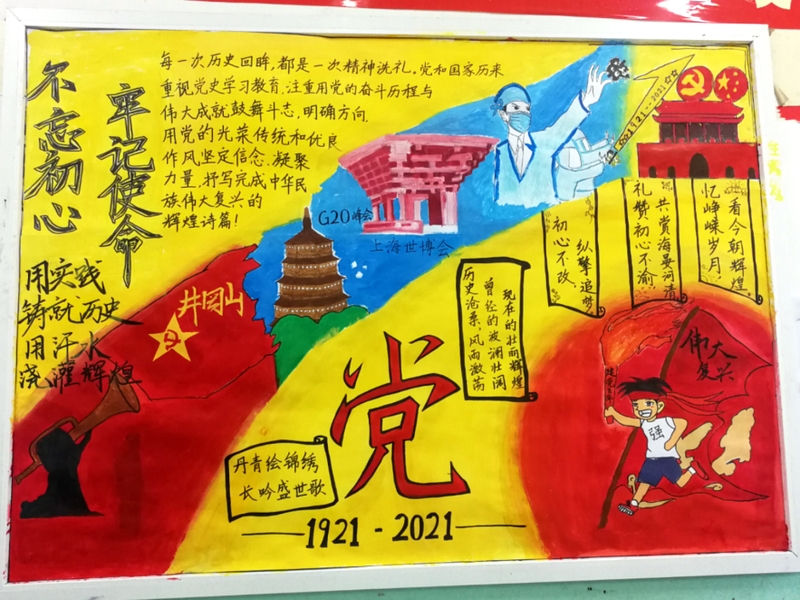 不忘初心
牢记使命
每一次历史回眸,都是一次精神洗礼。党和国家历来
重视党史学习教育,注重用党的奋斗历程与
伟大成就鼓舞斗志,明确方向,
用党的光荣传统和优良
作风坚定信念、凝聚
力量,抒写完成中华民
族伟大复兴的
辉煌诗篇!
用实践
铸就历史
用汗水
浇灌辉煌
井冈山
G20峰会
上海世博会
1921-2021
看今朝辉煌
忆峥嵘岁月:
共赏海晏河清
礼赞初心不渝
纵擎追梦
初心不改,
现在的壮丽辉煌
曾经的波澜壮阔
历史沧桑,风雨激荡
伟大
复兴
强
党
丹青绘锦绣
长吟盛世歌
1921-2021